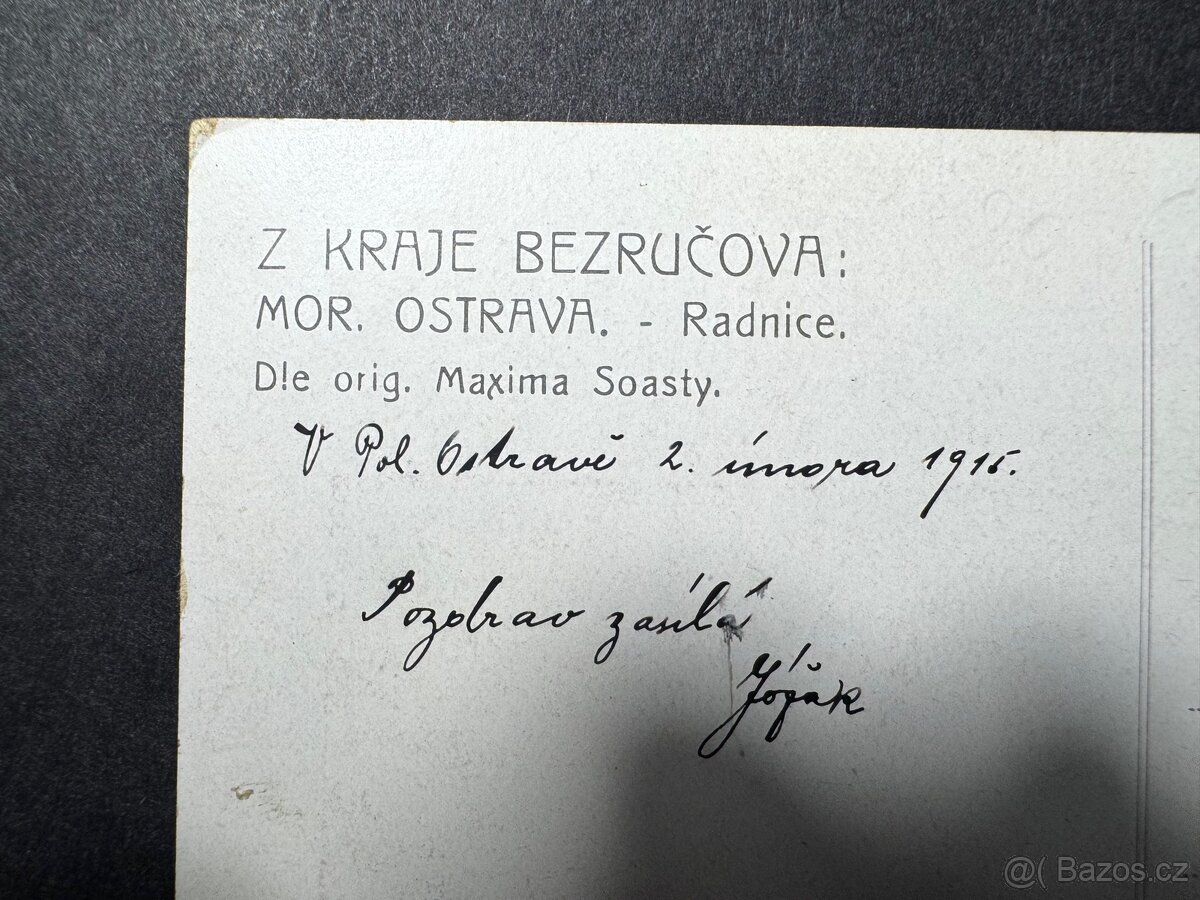 Z KRAJE BEZRUČOVA:
MOR. OSTRAVA. - Radnice.
Dle orig. Maxima Soasty.
V Pol. Ostravě 2. února 1915.
Pozdrav zasílá
@( Bazos.cz